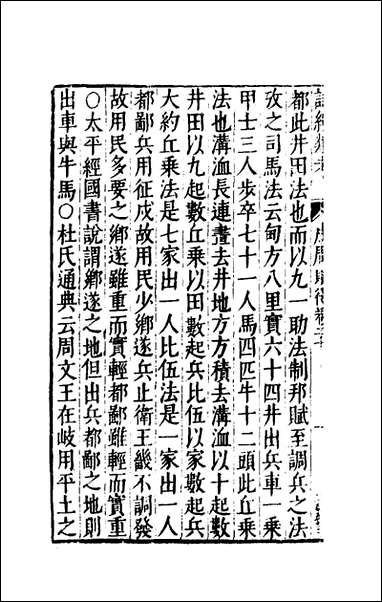 都此井田法也而以九一助法制邦賦至調兵之法
攷之司馬法云甸方八里實六十四井出兵車一乗
甲士三人步卒七十一人馬四匹牛十二頭此丘乗
法也溝洫長連晝去井地方方積去溝洫以十起數
井田以九起數丘乗以田數起兵比伍以家數起兵
大約丘乗法是七家出一人比伍法是一家出一人
都鄙兵用征戍故用民少鄉遂兵止衛王畿不調發
故用民多要之鄉遂雖重而實輕都鄙雖輕而實重
○太平經國書說謂鄉遂之地但出兵都鄙之地則
出車與牛馬○杜氏通典云周文王在岐用平土之